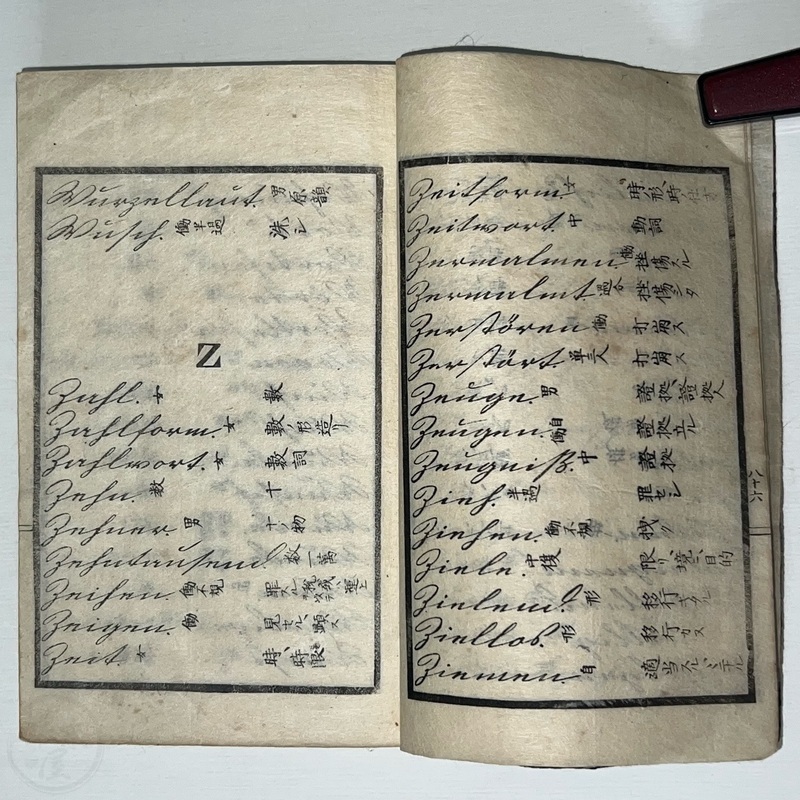 Wurzellaut. 男 原韻
Wusch. 働半過 洙シ
Z
Zahl. 女 數
Zahlform. 女 數ノ形造リ
Zahlwort. 女 數詞
Zehn. 数 十
Zehner. 男 十ノ物
Zehntausend 数 一萬
Zeihen. 働不規 罪スル
Zeigen. 働 見セル、顕ス
Zeit. 女 時、時限
Zeitform. 女 時ノ形、時
Zeitwort. 中 動詞
Zermalmen 働 挫傷スル
Zermalmt 過合 挫傷シタ
Zerstören 働 打崩ス
Zerstört. 単三人 打崩ス
Zeuge. 男 證拠、證拠人
Zeugen. 自働 證拠立ル
Zeugniß. 中 證拠
Zieh. 半過 罪セシ
Ziehen. 働不規 拽ク
Ziele. 中復 限リ、境、目的
Zielend 形 移行
Ziellos. 形 移行カス
Ziemen. 自 適当スル